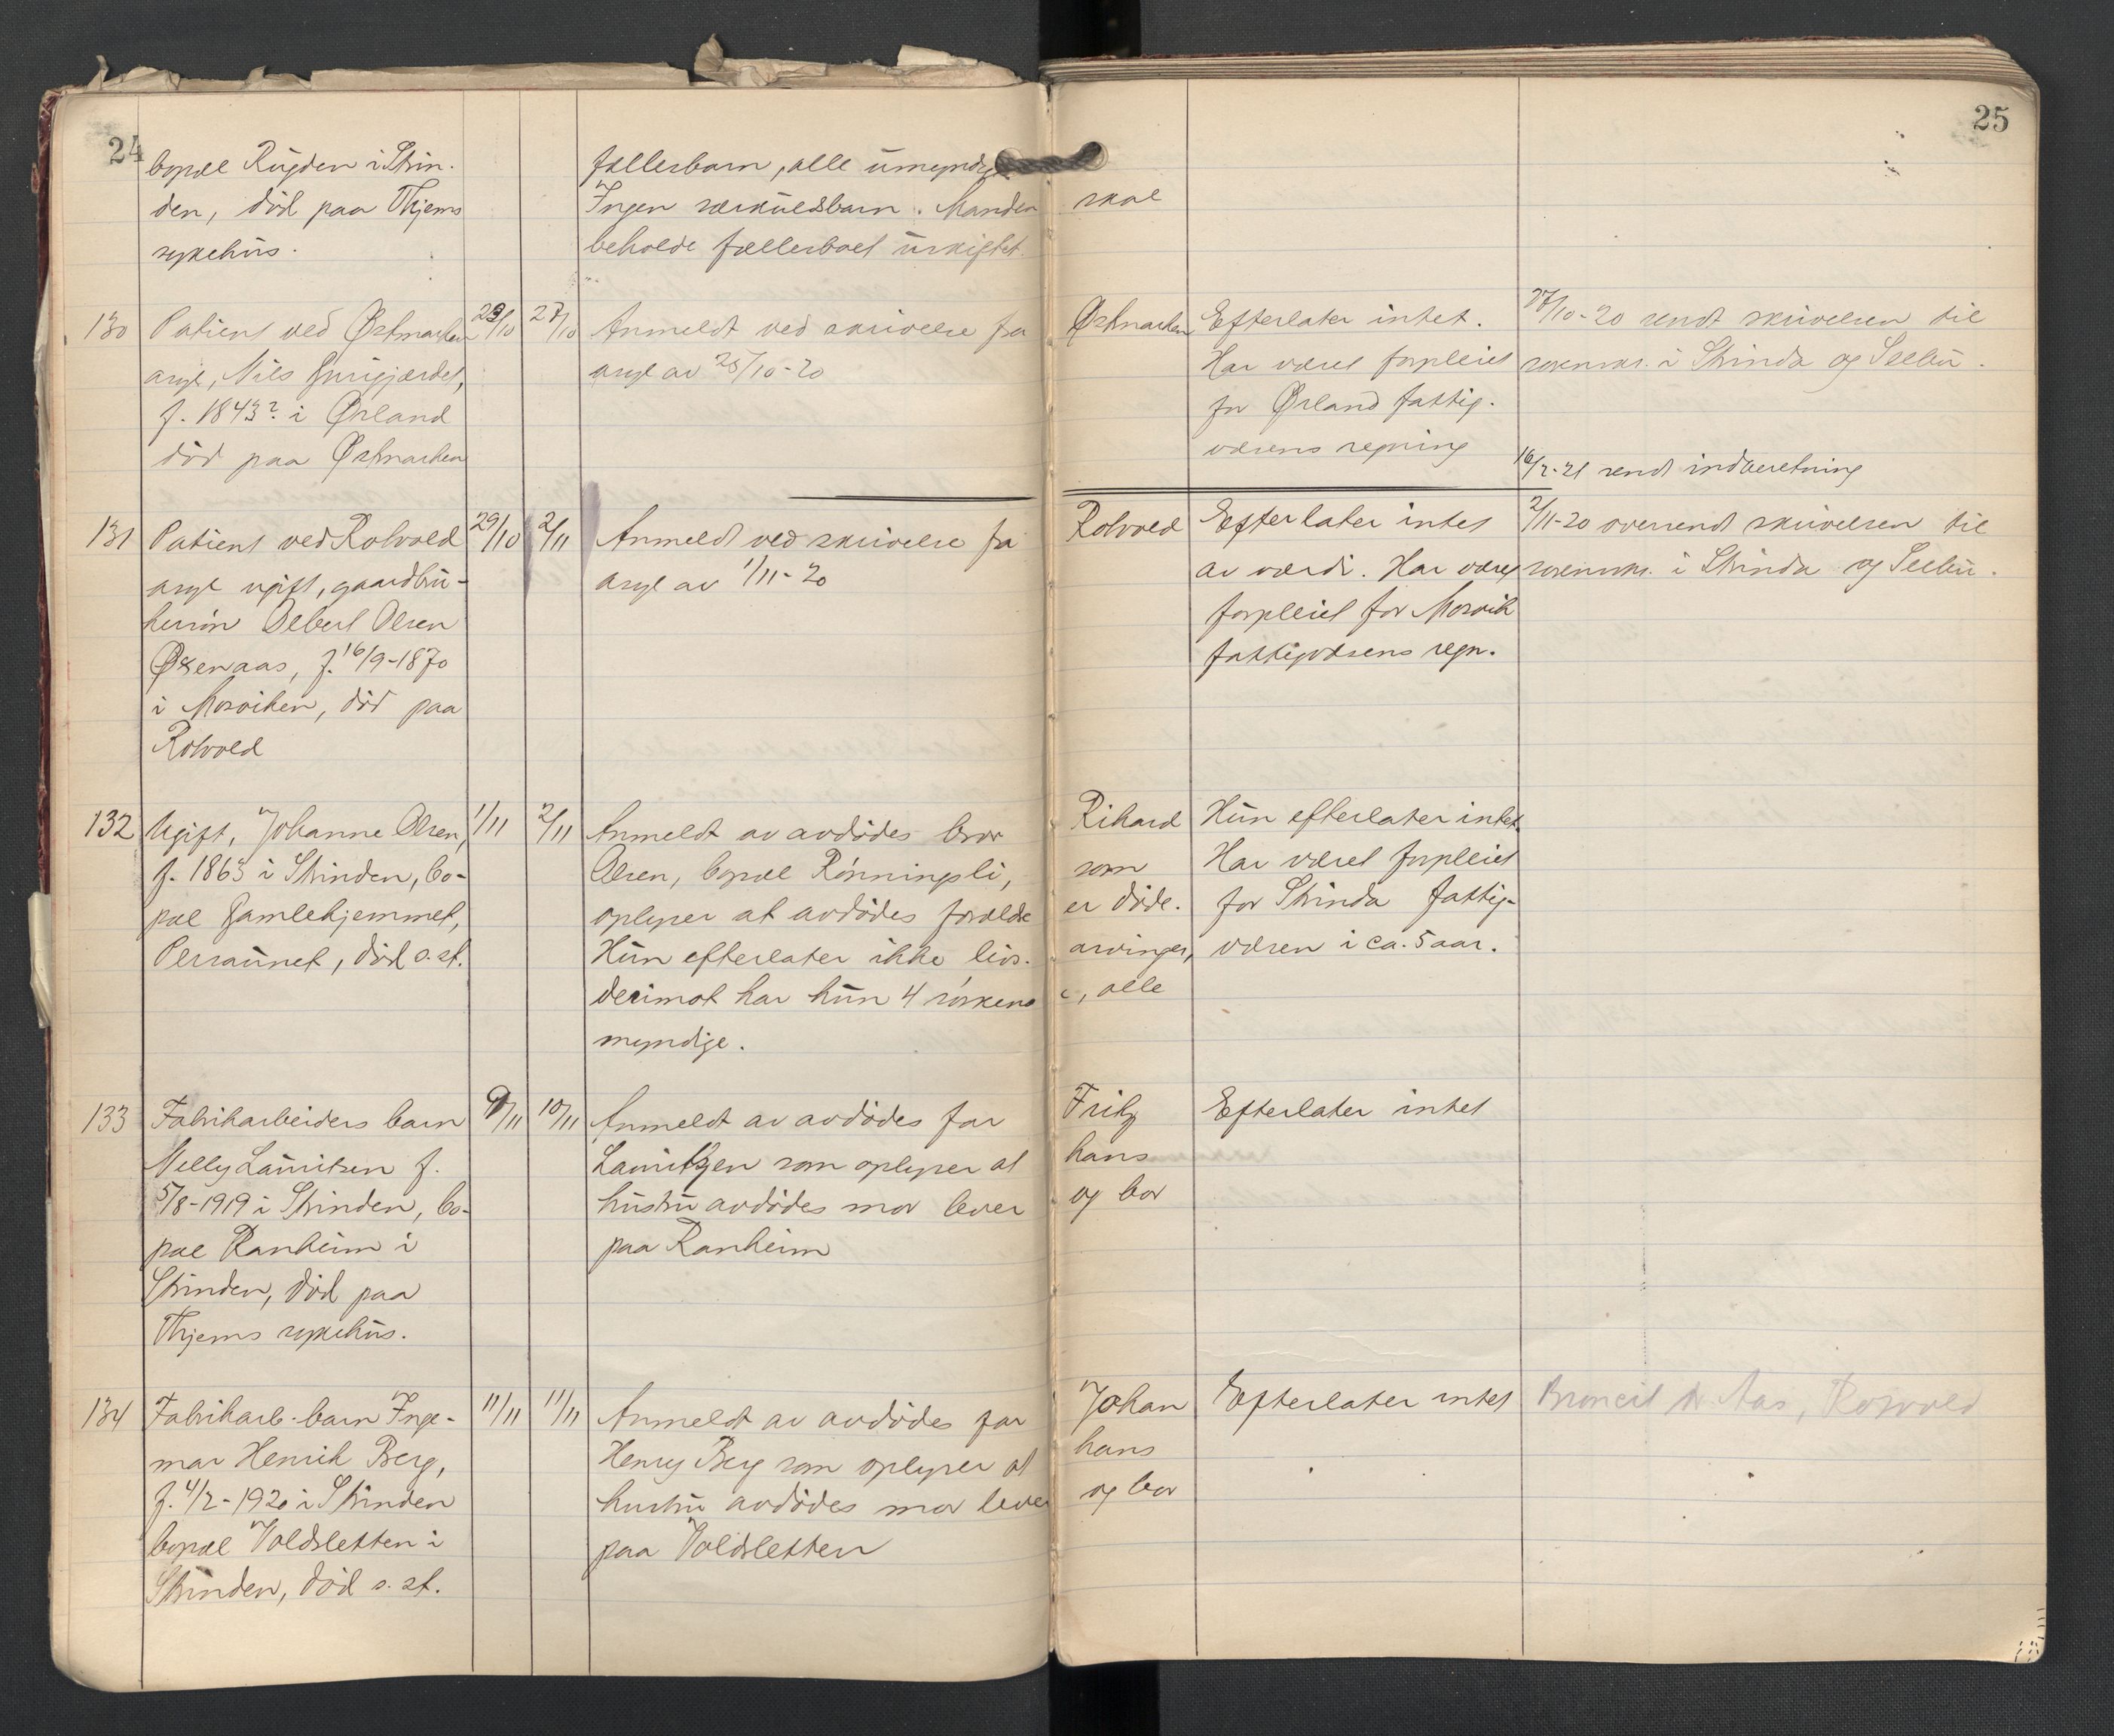 24
bopæl Rügden i Strin-
den, død paa Thjems
sykehus.
fællesbarn, alle umyndige
Ingen særkuldsbarn. Manden
beholde fællesboet uskiftet.
130
Patient ved Østmarken
asyl, Nils Gurigjærdet,
f. 1843? i Ørland
død paa Østmarken
23/10
27/10
Anmeldt ved skrivelse fra
asyl av 25/10-20
131
Patient ved Rotvold
asyl ugift, gaardbru-
kersøn Albert Olsen
Øxenaas, f. 16/9-1870
i Mosviken, død paa
Rotvold
29/10
2/11
Anmeldt ved skrivelse fra
asyl av 1/11-20
132
Ugift, Johanne Olsen,
f. 1863 i Strinden, bo-
pæl Gamlehjemmet,
Persaunet, død s. st.
1/11
2/11
Anmeldt av avdødes bror
Olsen, bopæl Rønningsli,
oplyser at avdødes forældre
Hun efterlater ikke livs-
derimot har hun 4 søskend
myndige.
133
Fabrikarbeiders barn
Nelly Lauritsen f.
5/8-1919 i Strinden, bo-
pæl Ranheim i
Strinden, død paa
Thjems sykehus.
9/11
10/11
Anmeldt av avdødes far
Lauritzen som oplyser at
hustru avdødes mor lever
paa Ranheim
134
Fabrikarb. barn Inge-
mar Henrik Berg,
f. 4/2-1920 i Strinden
bopæl Voldsletten i
Strinden, død s. st.
11/11
11/11
Anmeldt av avdødes far
Henry Berg som oplyser at
hustru avdødes mor lever
paa Voldsletten
25
skal
Østmarken
Efterlater intet.
Har været forpleiet
for Ørland fattig-
væsens regning
27/10-20 sendt skrivelsen til
sorenskr. i Strinda og Selbu.
16/2-21 sendt indberetning
Rotvold
Efterlater intet
av værdi. Har været
forpleiet for Mosvik
fattigvæsens regn.
2/11-20 oversendt skrivelsen til
sorenskr. i Strinda og Selbu.
Rikard
som
er døde.
arvinger,
e, alle
Hun efterlater intet.
Har været forpleiet
for Strinda fattig-
væsen i ca. 5 aar.
Fritz
hans
og bor
Efterlater intet
Johan
hans
og bor
Efterlater intet
Aas, Rotvold